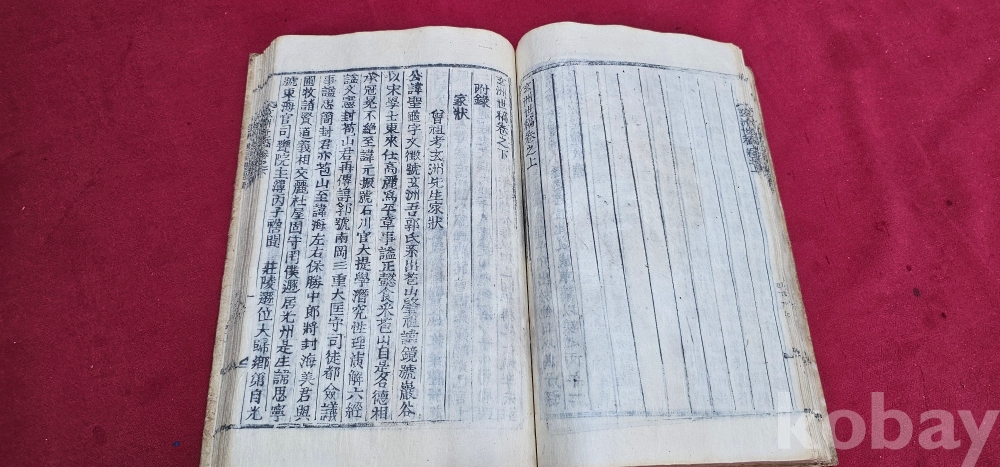 玄洲世稿卷之上
玄洲世稿卷之下
附錄
家狀
曾祖考玄洲先生家狀
公諱聖龜字文徵號玄洲吾郭氏系出苞山肇祖諱鏡號巖谷
以宋學士東來仕高麗爲平章事諡正懿食采苞山自是名德相
承冠冕不絶至諱元振號石川官大提學潛究性理演解六經
諡文憲封苞山君再傳諱邦號南岡三重大匡守司徒都僉議
事諡忠簡封君亦苞山至諱海左右保勝中郎將封海美君與
圃牧諸賢道義相交麗社屋固守罔僕遯居光州是生諱思寧
號東海官司贍院主簿丙子聞 莊陵遜位大歸鄉第自光
kobay